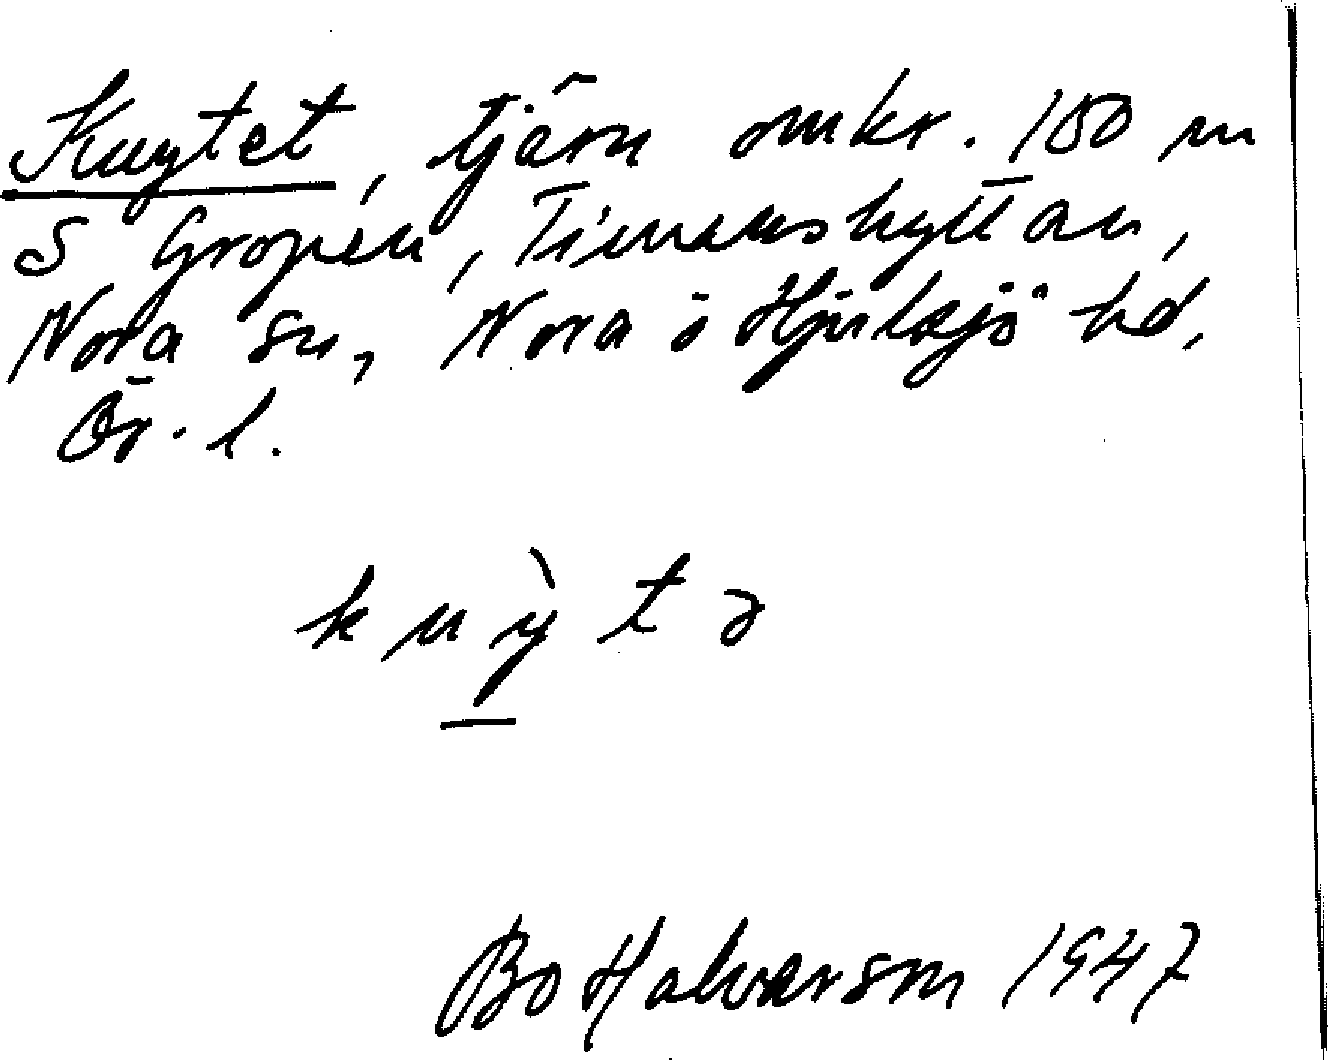 Knytet, tjärn omkr. 150 m
S Gropen, Timanshyttan,
Nora sn, Nora o Hjulsjö hd,
Ör. l.
k n ỳ t ə
Bo Halvarson 1947